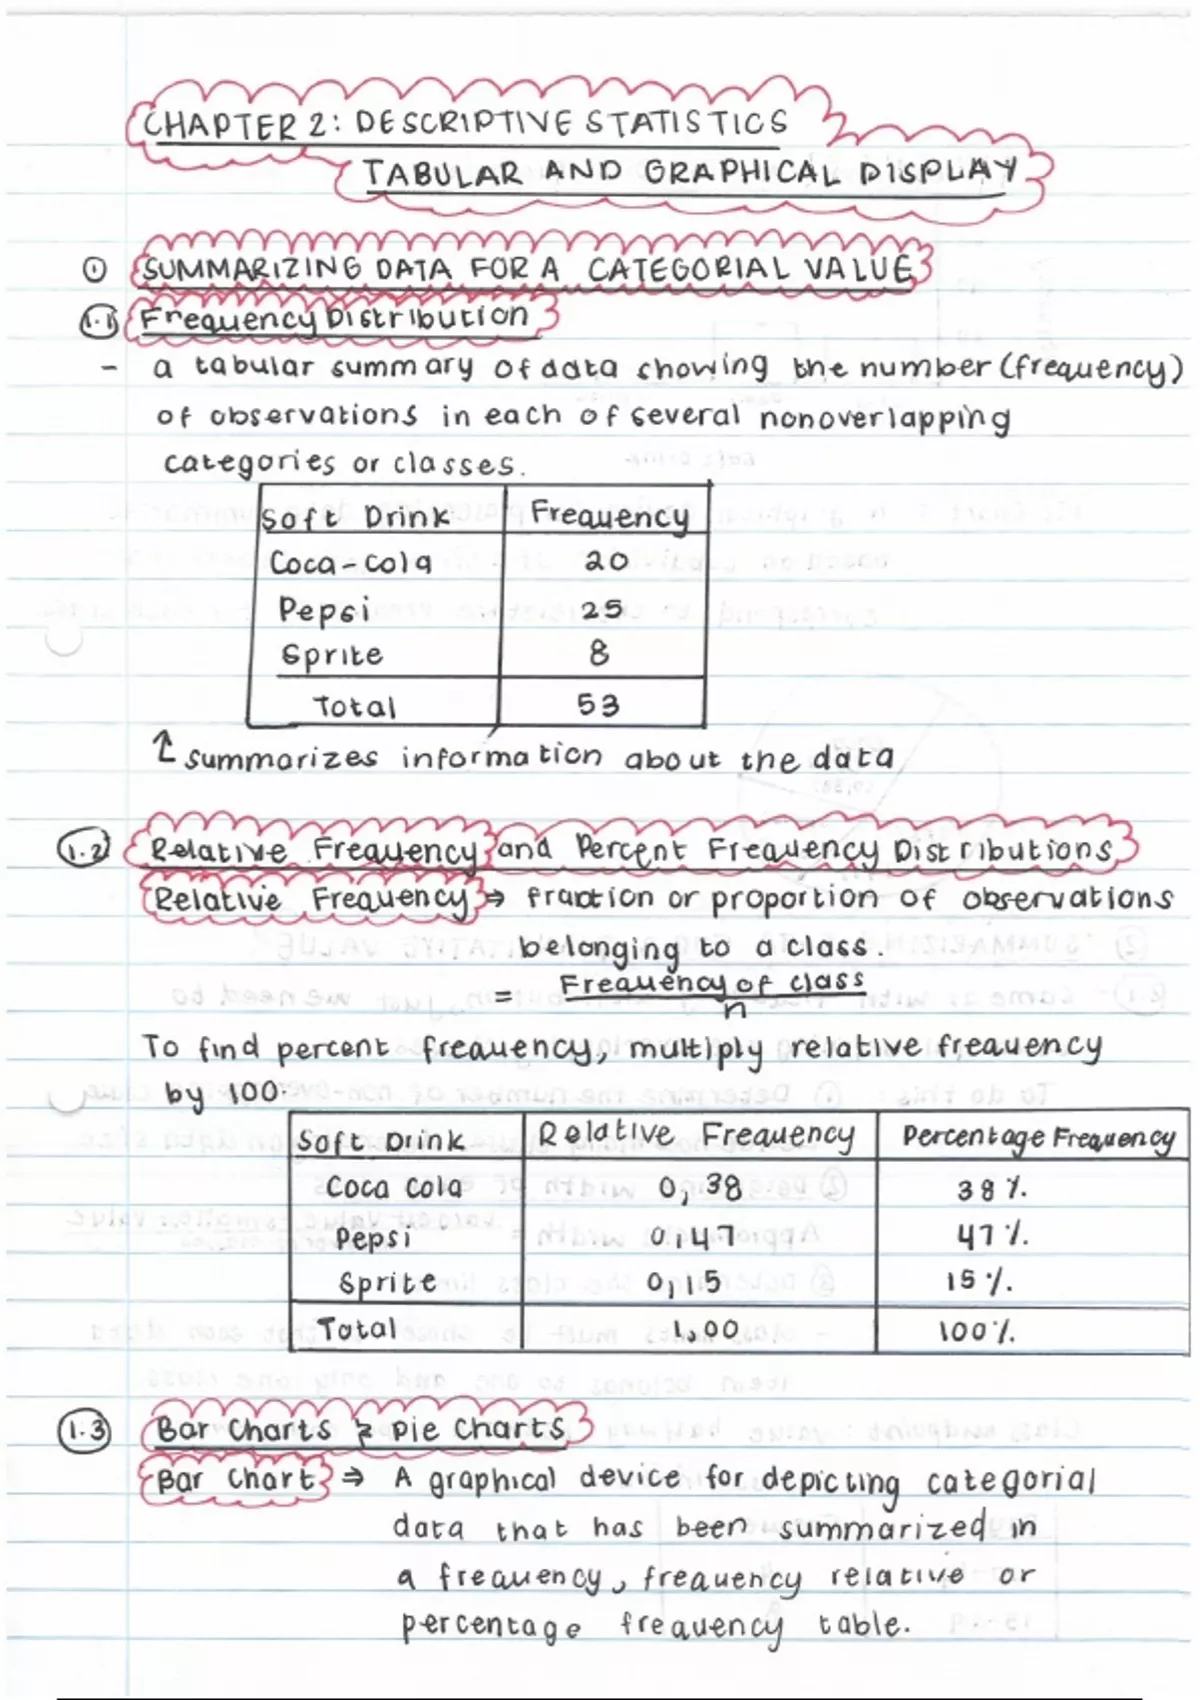 CHAPTER 2: DESCRIPTIVE STATISTICS
TABULAR AND GRAPHICAL DISPLAY
① SUMMARIZING DATA FOR A CATEGORIAL VALUE
1.1 Frequency Distribution
- a tabular summary of data showing the number (frequency)
of observations in each of several nonoverlapping
categories or classes.
Soft Drink Frequency
Coca-cola 20
Pepsi 25
Sprite 8
Total 53
↑ summarizes information about the data
1.2 Relative Frequency and Percent Frequency Distributions
Relative Frequency ⇒ fraction or proportion of observations
belonging to a class.
= Frequency of class
n
To find percent frequency, multiply relative frequency
by 100.
Soft Drink Relative Frequency Percentage Frequency
Coca Cola 0,38 38%
Pepsi 0,47 47%
Sprite 0,15 15%
Total 1,00 100%
1.3 Bar Charts & Pie Charts
Bar Chart ⇒ A graphical device for depicting categorial
data that has been summarized in
a frequency, frequency relative or
percentage frequency table.